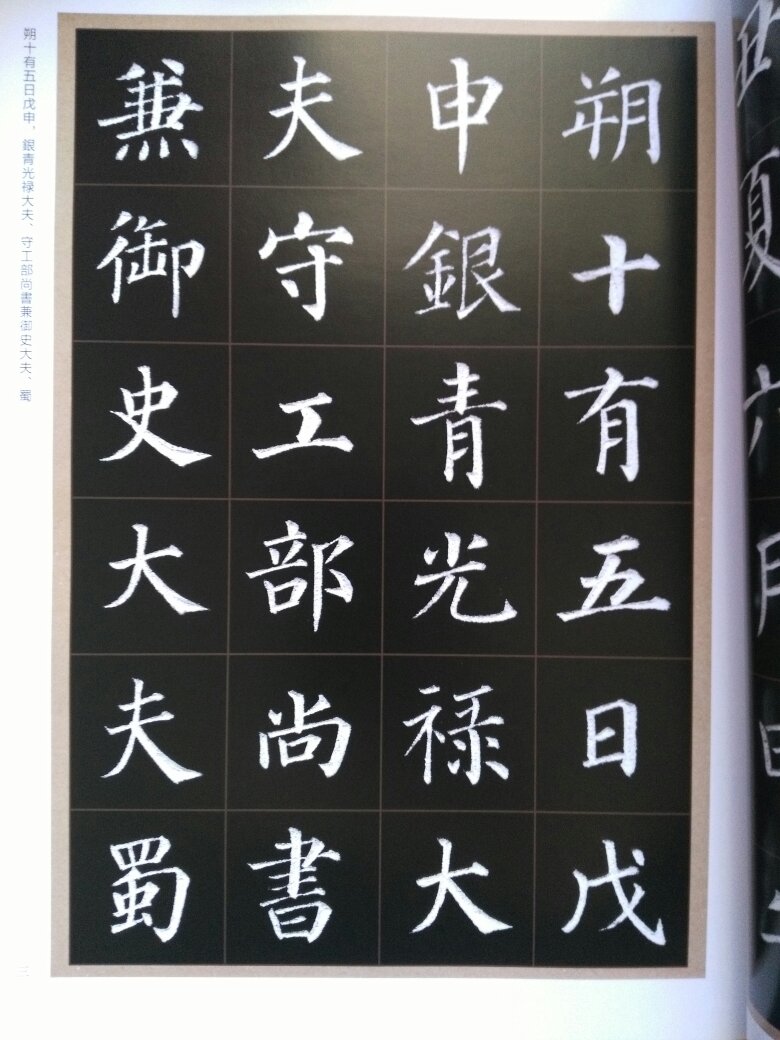 朔十有五日戊
申銀青光禄大
夫守工部尚書
兼御史大夫蜀
朔十有五日戊申，銀青光禄大夫、守工部尚書兼御史大夫、蜀
三